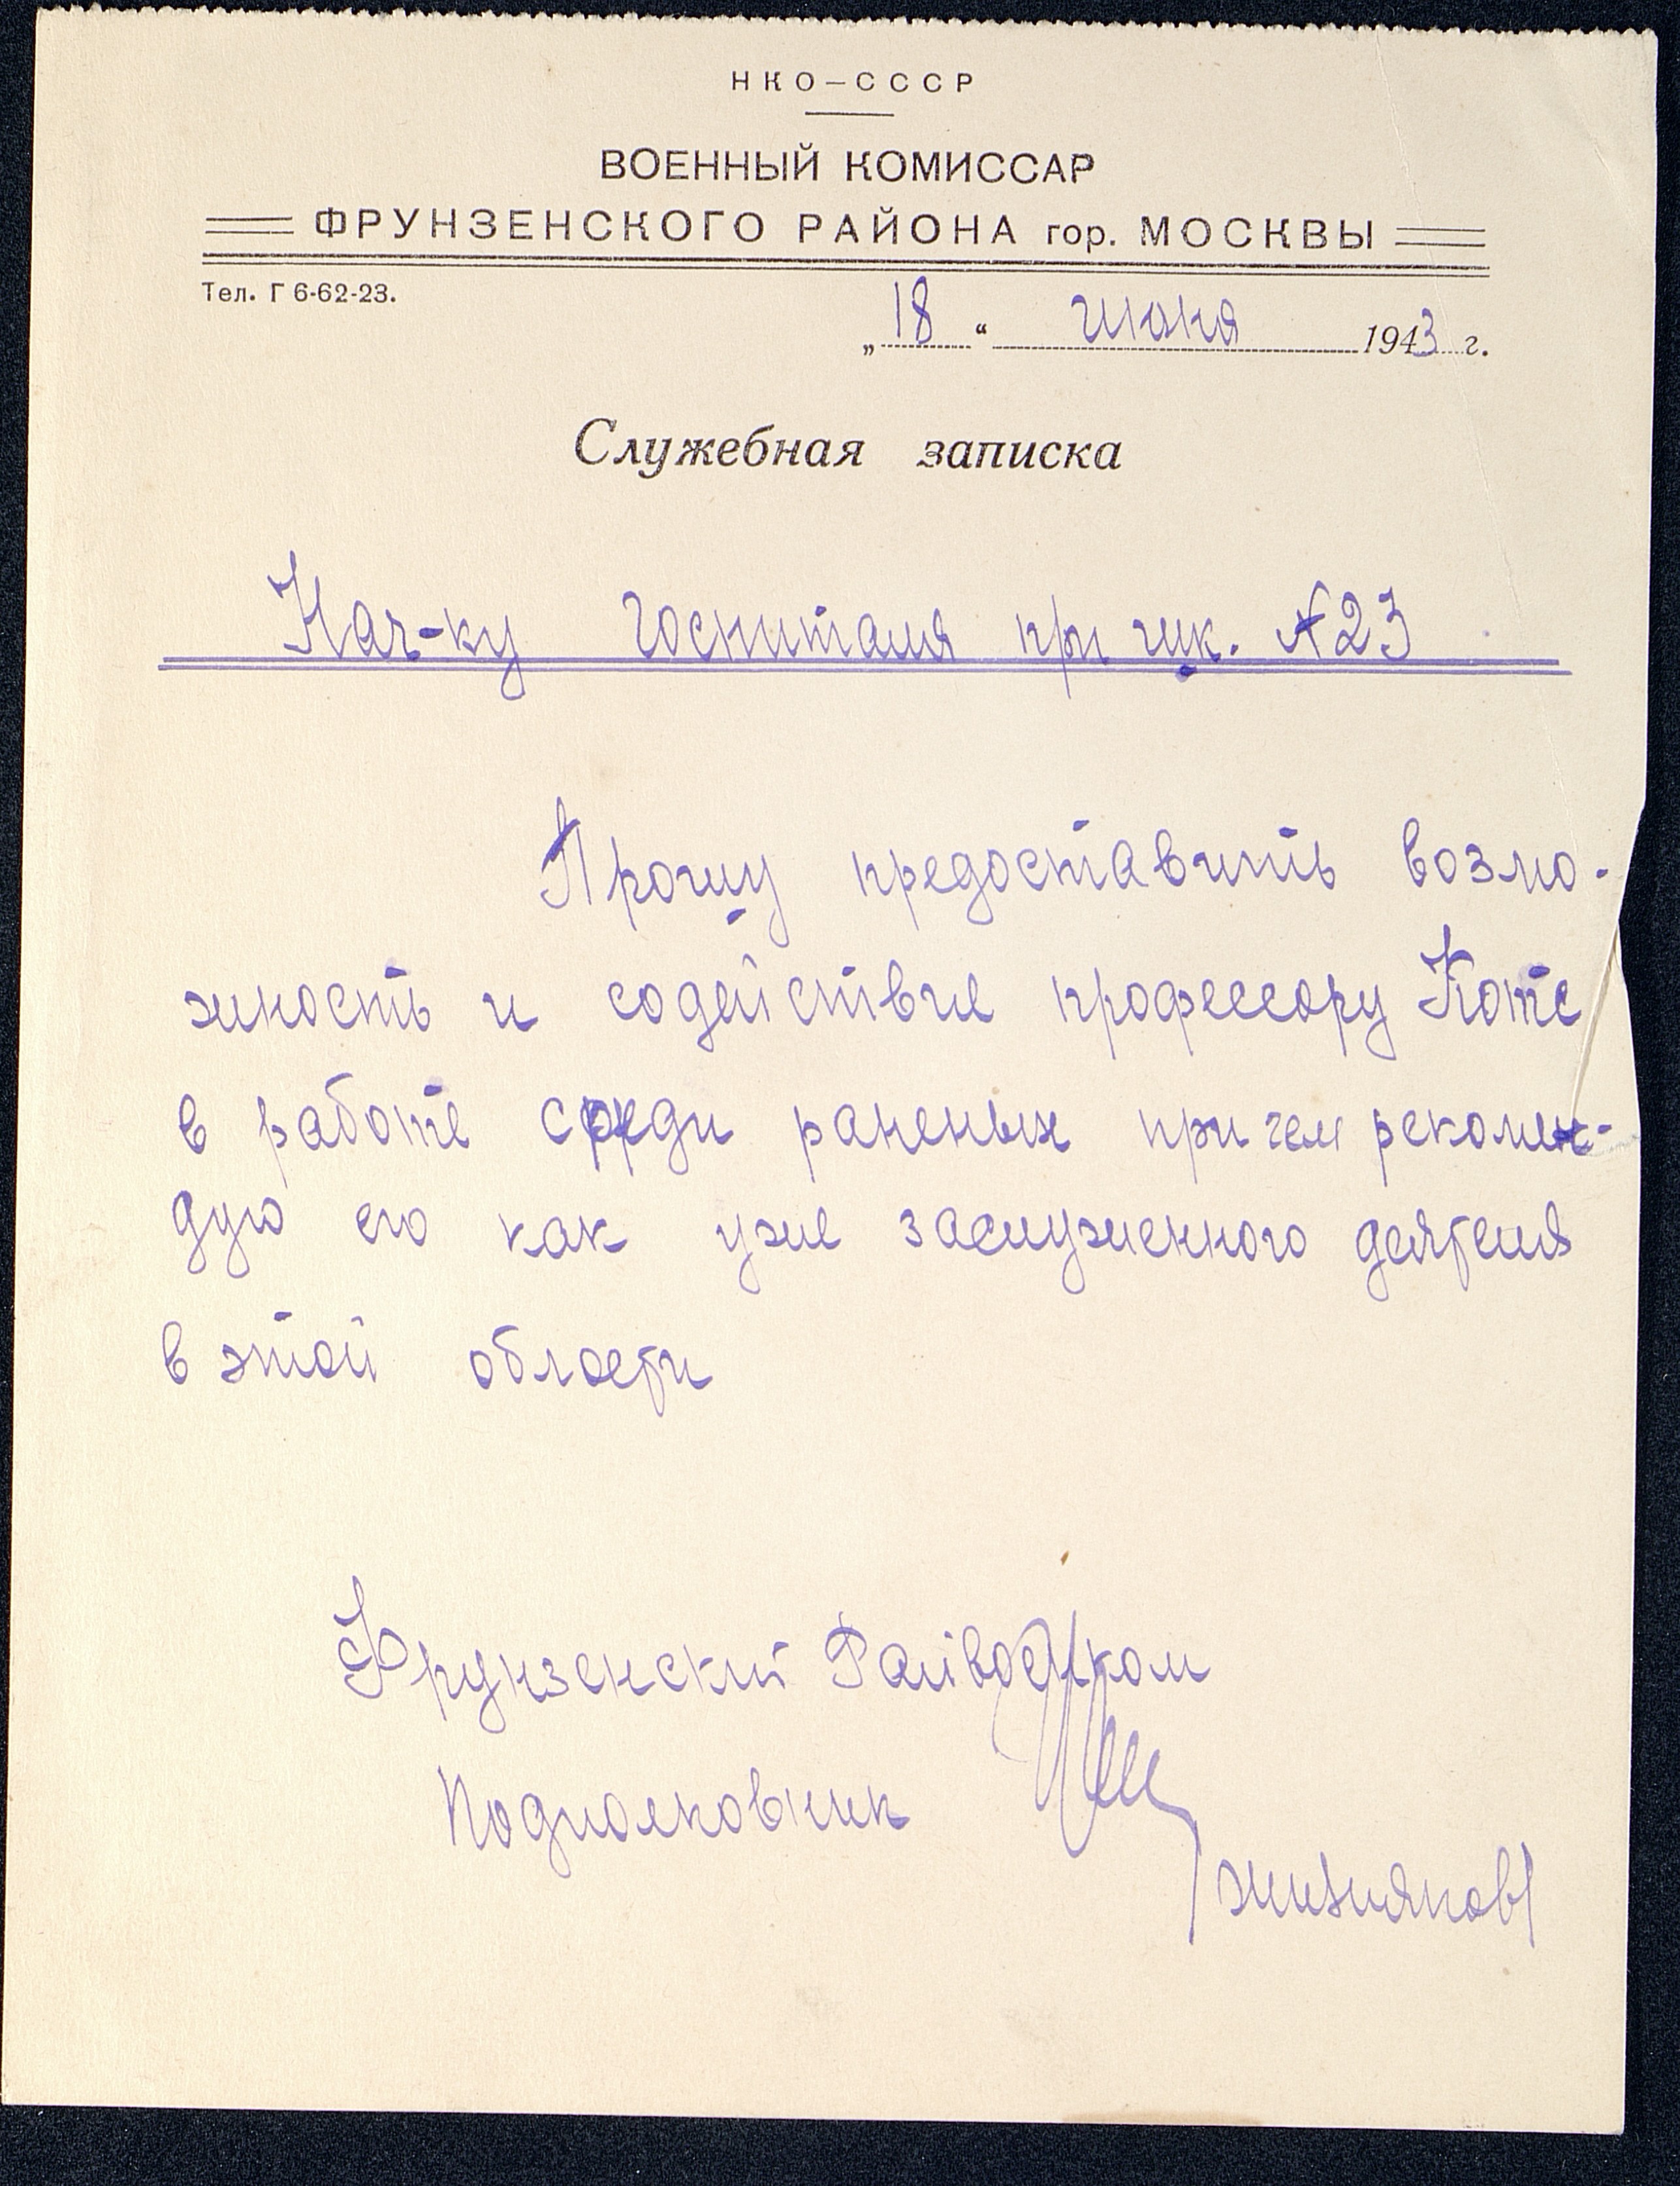 НКО—СССР
ВОЕННЫЙ КОМИССАР
ФРУНЗЕНСКОГО РАЙОНА гор. МОСКВЫ
Тел. Г 6-62-23.
„18“ июня 1943 г.
Служебная записка
Нач-ку госпиталя при шк. №23
Прошу предоставить возмо-
жность и содействие профессору Котс
в работе среди раненых при чем рекомен-
дую его как уже заслуженного деятеля
в этой области
Фрунзенский Райвоенком
Подполковник